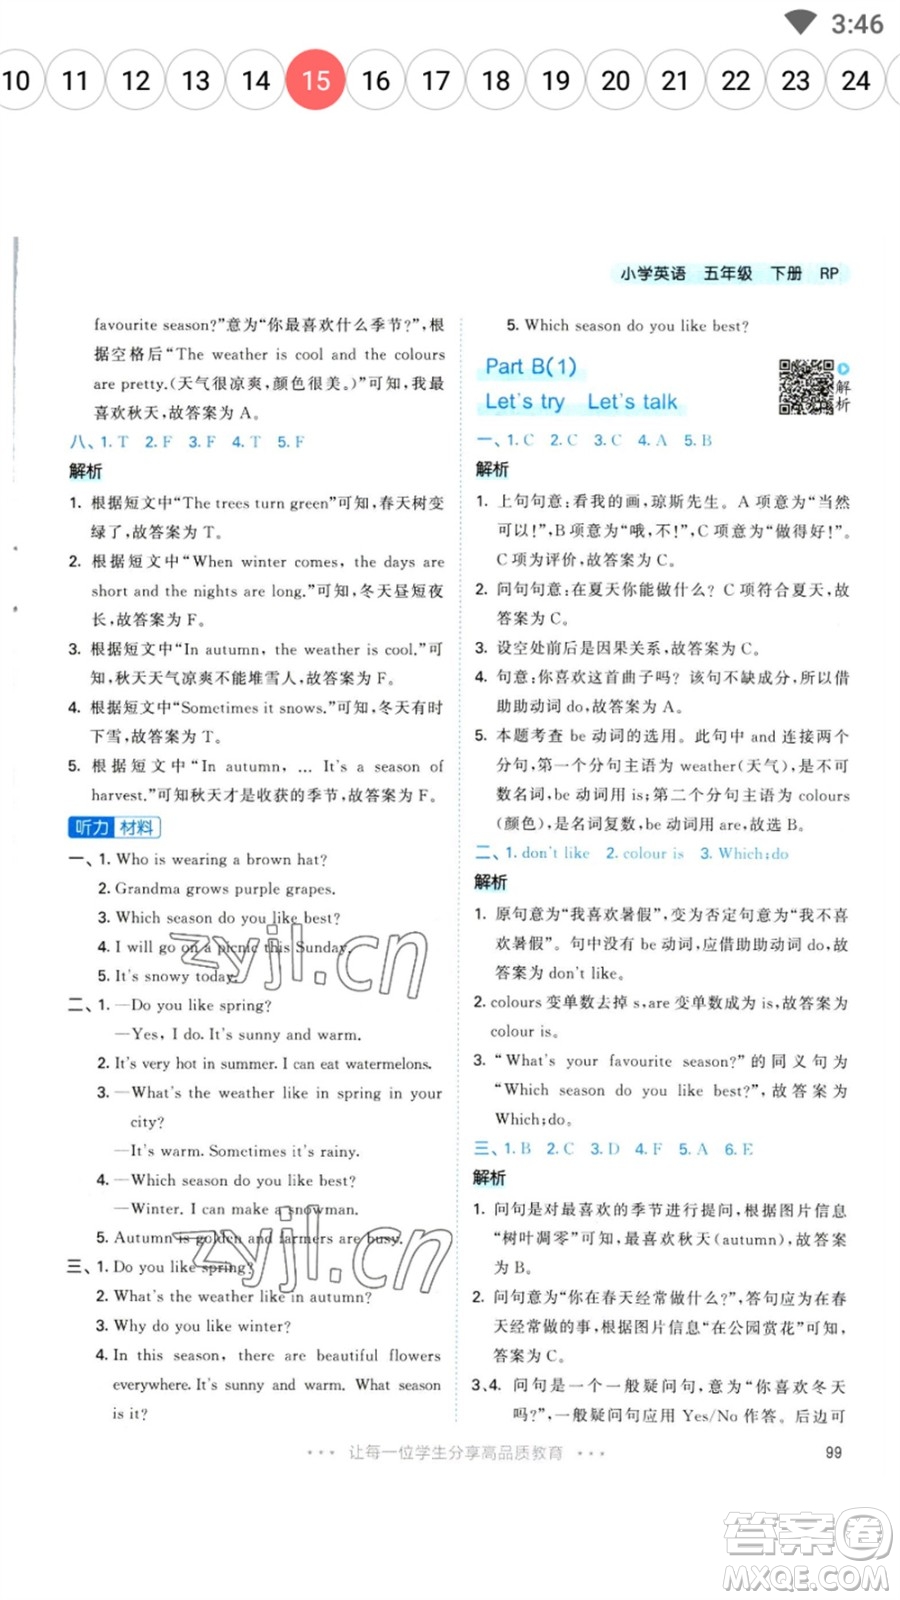 3:46
10 11 12 13 14 15 16 17 18 19 20 21 22 23 24
小学英语 五年级 下册 RP
favourite season?”意为“你最喜欢什么季节?”,根
据空格后“The weather is cool and the colours
are pretty.(天气很凉爽,颜色很美。)”可知,我最
喜欢秋天,故答案为 A。
八、1. T 2. F 3. F 4. T 5. F
解析
1. 根据短文中“The trees turn green”可知,春天树变
绿了,故答案为 T。
2. 根据短文中“When winter comes, the days are
short and the nights are long.”可知,冬天昼短夜
长,故答案为 F。
3. 根据短文中“In autumn, the weather is cool.”可
知,秋天天气凉爽不能堆雪人,故答案为 F。
4. 根据短文中“Sometimes it snows.”可知,冬天有时
下雪,故答案为 T。
5. 根据短文中“In autumn, … It's a season of
harvest.”可知秋天才是收获的季节,故答案为 F。
听力 材料
一、1. Who is wearing a brown hat?
2. Grandma grows purple grapes.
3. Which season do you like best?
4. I will go on a picnic this Sunday.
5. It's snowy today.
二、1. —Do you like spring?
—Yes, I do. It's sunny and warm.
2. It's very hot in summer. I can eat watermelons.
3. —What's the weather like in spring in your
city?
—It's warm. Sometimes it's rainy.
4. —Which season do you like best?
—Winter. I can make a snowman.
5. Autumn is golden and farmers are busy.
三、1. Do you like spring?
2. What's the weather like in autumn?
3. Why do you like winter?
4. In this season, there are beautiful flowers
everywhere. It's sunny and warm. What season
is it?
5. Which season do you like best?
Part B(1)
Let's try Let's talk
解析
一、1. C 2. C 3. C 4. A 5. B
解析
1. 上句句意:看我的画,琼斯先生。A 项意为“当然
可以!”,B 项意为“哦,不!”,C 项意为“做得好!”。
C 项为评价,故答案为 C。
2. 问句句意:在夏天你能做什么? C 项符合夏天,故
答案为 C。
3. 设空处前后是因果关系,故答案为 C。
4. 句意:你喜欢这首曲子吗? 该句不缺成分,所以
借助助动词 do,故答案为 A。
5. 本题考查 be 动词的选用。此句中 and 连接两个
分句,第一个分句主语为 weather(天气),是不可
数名词,be 动词用 is;第二个分句主语为 colours
(颜色),是名词复数,be 动词用 are,故选 B。
二、1. don't like 2. colour is 3. Which;do
解析
1. 原句意为“我喜欢暑假”,变为否定句意为“我不喜
欢暑假”。句中没有 be 动词,应借助助动词 do,故
答案为 don't like。
2. colours 变单数去掉 s,are 变单数成为 is,故答案为
colour is。
3. “What's your favourite season?”的同义句为
“Which season do you like best?”,故答案为
Which;do。
三、1. B 2. C 3. D 4. F 5. A 6. E
解析
1. 问句是对最喜欢的季节进行提问,根据图片信息
“树叶凋零”可知,喜欢秋天(autumn),故答案为
B。
2. 问句意为“你在春天经常做什么?”,答句应为在春
天经常做的事,根据图片信息“在公园赏花”可知,
答案为 C。
3、4. 问句是一个一般疑问句,意为“你喜欢冬天
吗?”,一般疑问句应用 Yes/No 作答。后边可
让每一位学生分享高品质教育
99
zyjl.cn
zyjl.cn
答案卷
MXQE.COM